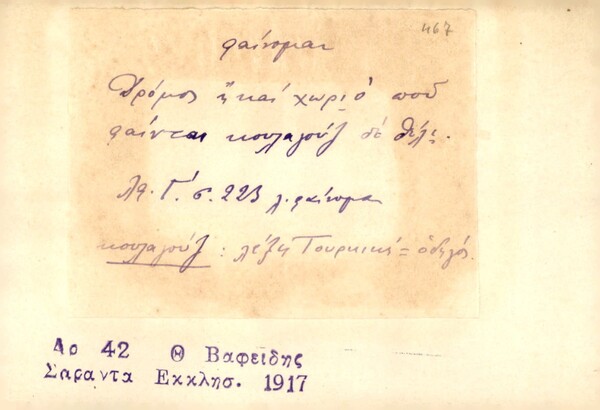 467
φαίνομαι
Δρόμος ἢ καί χωριὸ ποῦ
φαίνεται κουλαγούζ δὲ θέλει.
Λα. Γ΄. σ. 223 λ. φαίνομαι
κουλαγούζ : λέξις Τουρκική = ὁδηγός.
Αρ 42 Θ Βαφείδης
Σαραντα Εκκλησ. 1917